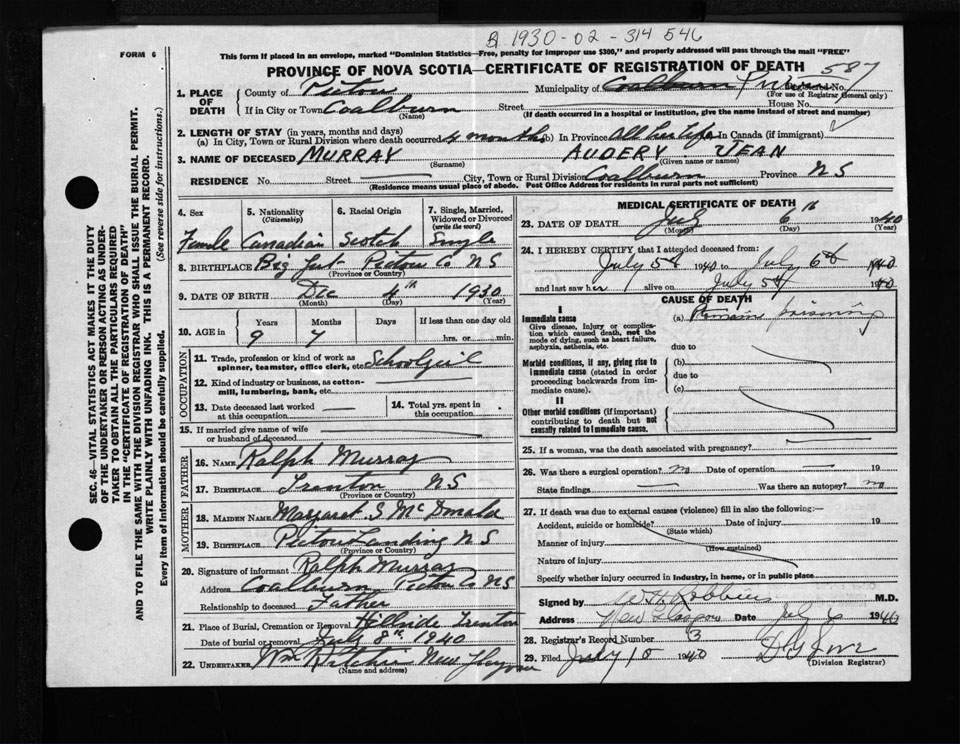 B. 1930-02-314546
FORM 6
This form if placed in an envelope, marked "Dominion Statistics—Free, penalty for improper use $300," and properly addressed will pass through the mail "FREE"
PROVINCE OF NOVA SCOTIA—CERTIFICATE OF REGISTRATION OF DEATH
587
1. PLACE OF DEATH County of Pictou Municipality of Coalburn Registered No.
(For use of Registrar General only)
If in City or Town Coalburn Street House No.
(Name) (If death occurred in a hospital or institution, give the name instead of street and number)
2. LENGTH OF STAY (in years, months and days)
(a) In City, Town or Rural Division where death occurred 4 months (b) In Province All her life In Canada (if immigrant)
3. NAME OF DECEASED MURRAY AUDERY JEAN
(Surname) (Given name or names)
RESIDENCE No. Street City, Town or Rural Division Coalburn Province NS
(Residence means usual place of abode. Post Office Address for residents in rural parts not sufficient)
4. Sex 5. Nationality (Citizenship) 6. Racial Origin 7. Single, Married, Widowed or Divorced (write the word)
Female Canadian Scotch Single
8. BIRTHPLACE Big Gut Pictou Co NS
(Province or Country)
9. DATE OF BIRTH Dec 4th 1930
(Month) (Day) (Year)
10. AGE in Years Months Days If less than one day old
9 7 hrs. or min.
OCCUPATION
11. Trade, profession or kind of work as spinner, teamster, office clerk, etc. Schoolgirl
12. Kind of industry or business, as cotton-mill, lumbering, bank, etc.
13. Date deceased last worked at this occupation 14. Total yrs. spent in this occupation
15. If married give name of wife or husband of deceased
FATHER
16. NAME Ralph Murray
17. BIRTHPLACE Trenton NS
(Province or Country)
MOTHER
18. MAIDEN NAME Margaret S McDonald
19. BIRTHPLACE Pictou Landing NS
(Province or Country)
20. Signature of informant Ralph Murray
Address Coalburn Pictou Co NS
Relationship to deceased Father
21. Place of Burial, Cremation or Removal Hillside Trenton
Date of burial or removal July 8th 1940
22. UNDERTAKER Wm Ritchie New Glasgow
(Name and address)
MEDICAL CERTIFICATE OF DEATH
23. DATE OF DEATH July 6th 1940
(Month) (Day) (Year)
24. I HEREBY CERTIFY that I attended deceased from:
July 5th 1940 to July 6th 1940
and last saw her alive on July 5th 1940
CAUSE OF DEATH
Immediate cause
Give disease, injury or complication which caused death, not the mode of dying, such as heart failure, asphyxia, asthenia, etc.
(a) Ptomaine poisoning
due to
Morbid conditions, if any, giving rise to immediate cause (stated in order proceeding backwards from immediate cause).
(b)
due to
(c)
II
Other morbid conditions (if important) contributing to death but not causally related to immediate cause.
25. If a woman, was the death associated with pregnancy?
26. Was there a surgical operation? no Date of operation 19
State findings Was there an autopsy? no
27. If death was due to external causes (violence) fill in also the following:—
Accident, suicide or homicide? Date of injury 19
(State which)
Manner of injury
(How sustained)
Nature of injury
Specify whether injury occurred in industry, in home, or in public place
Signed by W H Robbins M.D.
Address New Glasgow Date July 6 1940
28. Registrar's Record Number 3
29. Filed July 10 1940
(Division Registrar)
SEC. 46—VITAL STATISTICS ACT MAKES IT THE DUTY
OF THE UNDERTAKER OR PERSON ACTING AS UNDER-
TAKER TO OBTAIN ALL THE PARTICULARS REQUIRED
IN THE "CERTIFICATE OF REGISTRATION OF DEATH"
AND TO FILE THE SAME WITH THE DIVISION REGISTRAR WHO SHALL ISSUE THE BURIAL PERMIT.
WRITE PLAINLY WITH UNFADING INK. THIS IS A PERMANENT RECORD.
Every item of information should be carefully supplied. (See reverse side for instructions.)